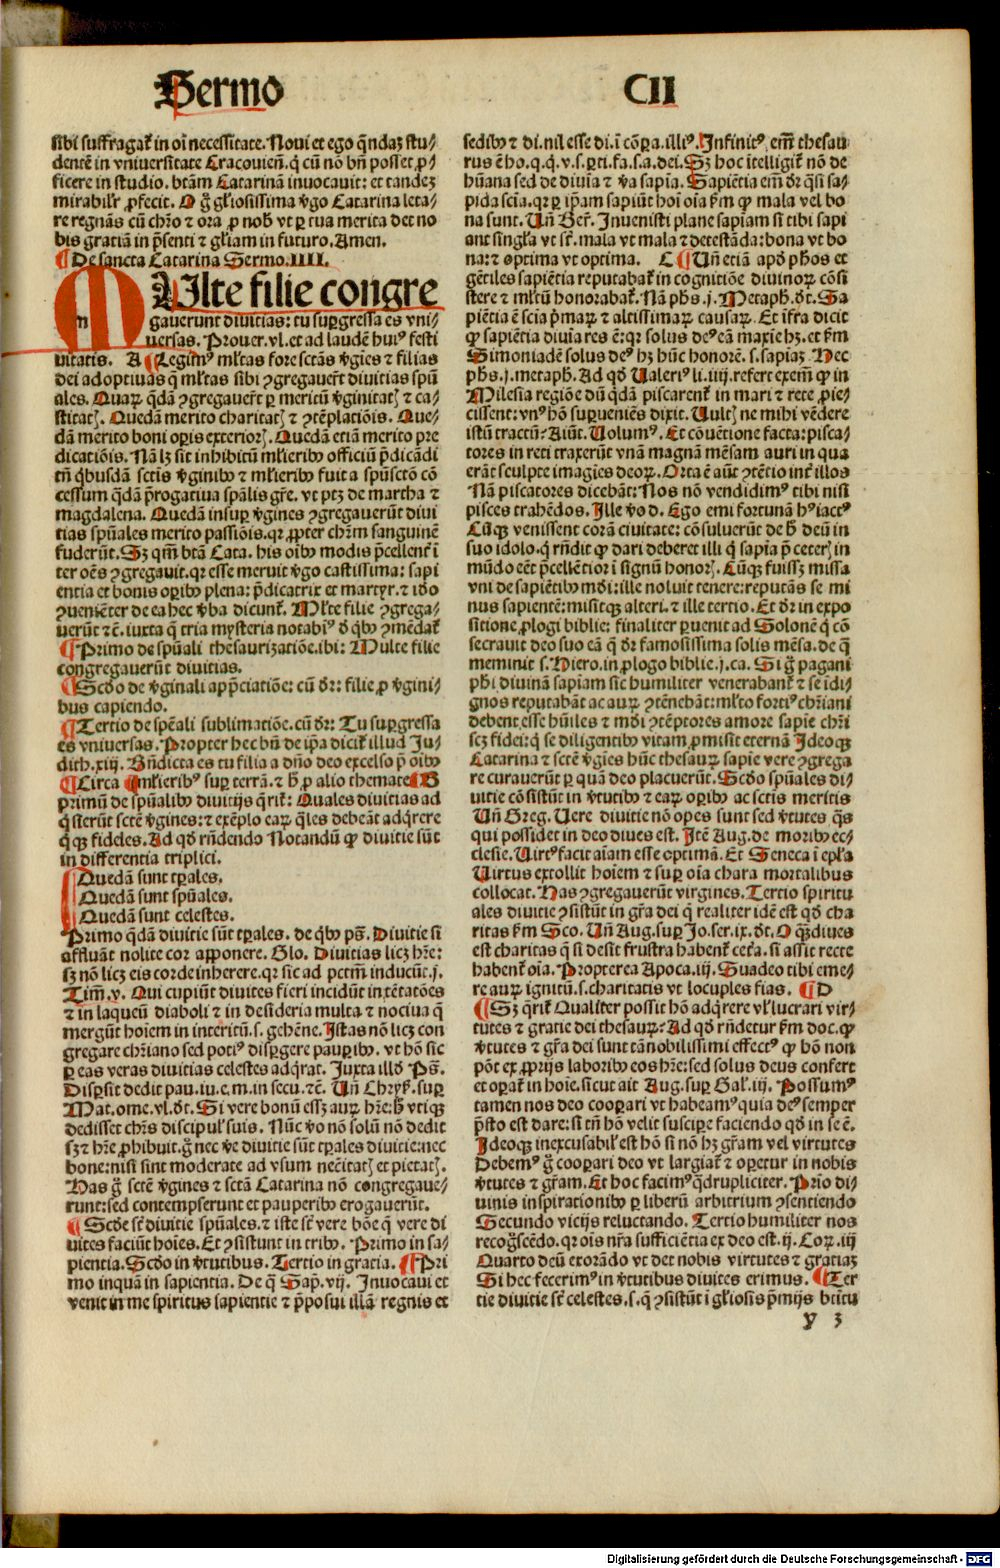 Sermo
CII
sibi suffragat̃ in oı̃ necessitate. Noui et ego q̃ndaʒ stu⸗
dentẽ in vniuersitate Cracouieñ. q̃ cũ nõ bñ posset ꝓ⸗
ficere in studio. btãm Catarinã inuocauit: et tandeʒ
mirabilr̃ ꝓfecit. O g̃ gl̃iosissima v̾go Catarina leta⸗
re regnãs cũ chr̃o et ora ꝓ nob̾ vt ꝑ tua merita det no
bis gratiã in p̃senti ⁊ gl̃iam in futuro. Amen.
¶ De sancta Catarina Sermo. IIII.
MUlte filie congre
gauerunt diuitias: tu suꝑgressa es vni⸗
uersas. Prouer. vl. et ad laudẽ huiꝰ festi
uitatis. A ¶ Legimꝰ ml̃tas fore sctãs v̾gies ⁊ filias
dei adoptiuas q̃ ml̃tas sibi ꝯgregauer̃t diuitias spũ
ales. Quaꝝ q̃dã ꝯgregauer̃t ꝑ meritũ v̾ginitat̾ ⁊ ca⸗
stitat̾. Quedã merito charitat̾ ⁊ ꝯtẽplatiõis. Que⸗
dã merito boni oꝑis exterior̾. Quedã etiã merito pre
dicatiõis. Nã lʒ sit inhibitũ ml̃ierib⁹ officiũ p̃dicãdi
tñ q̃busdã sctis v̾ginib⁹ ⁊ ml̃ierib⁹ fuit a spũscto cõ
cessum q̃dã p̃rogatiua sp̃alis gr̃e. vt ptʒ de martha ⁊
magdalena. Quedã insuꝑ v̾gines ꝯgregauerũt diui
tias spũales merito passiõis. qr ꝓpter chr̃m sanguinẽ
fuderũt. Sʒ qm̃ btã Cata. his oı̃b⁹ modis p̃cellent̾ ı̃
ter oẽs ꝯgregauit. qr esse meruit v̾go castissima: sapi
entia et bonis oꝑib⁹ plena: p̃dicatrix et martyr. ⁊ ido
ꝯueniẽter de ea hec v̾ba dicunt̃. Ml̃te filie ꝯgrega⸗
uerũt ⁊c̃. iuxta q̃ tria mysteria notabı̃ꝰ d̾ q̃b⁹ ꝯmẽdat̃
¶ Primo de spũali thesaurizatiõe. ibi: Multe filie
congregauerũt diuitias.
¶ Scdo de v̾ginali app̃ciatiõe: cũ dr̃: filie ꝓ v̾gini⸗
bus capiendo.
¶ Tertio de spẽali sublimatiõe. cũ dr̃: Tu suꝑgressa
es vniuersas. Propter hec bñ de ip̃a dicit̃ illud Ju⸗
dith. xiij. Bñdicta es tu filia a dño deo excelso p̃ oı̃b⁹
¶ Circa ml̃ierib⁹ suꝑ terrã. ⁊ h̾ ꝓ alio themate ¶ B
primũ de spũalib⁹ diuitijs q̃rit̃: Quales diuitias ad
q̃sierũt sctẽ v̾gines: ⁊ exẽplo eaꝝ q̃les debeãt adq̃rere
q̃q̃ fideles. Ad qd̾ rñdendo Notandũ ꝙ diuitie sũt
in differentia triplici.
Quedã sunt tꝑales.
Quedã sunt spũales.
Quedã sunt celestes.
Primo q̃dã diuitie sũt tꝑales. de q̃b⁹ pš. Diuitie si
affluãt nolite cor apponere. Glo. Diuitias licʒ hr̃e:
sʒ nõ licʒ eis corde inherere. qr sic ad pctm̃ inducũt. j.
Tim̃. v. Qui cupiũt diuites fieri incidũt in tẽtatões
⁊ in laqueũ diaboli ⁊ in desideria multa ⁊ nociua q̃
mergũt hoı̃em in interitũ. s. gehẽne. Istas nõ licʒ con
gregare chr̃iano sed potiꝰ disꝑgere pauꝑib⁹. vt hõ sic
ꝑ eas veras diuitias celestes adq̃rat. Juxta illd̾ Pš.
Disꝑsit dedit pau. iu. c. m. in secu. ⁊c̃. Uñ Chryš. suꝑ
Mat. ome. vl. dt̃. Si vere bonũ essʒ auꝝ hr̃e: h̾ vtiqʒ
dedisset chr̃s discipul̾ suis. Nũc v̾o nõ solũ nõ dedit
sʒ ⁊ hr̃e ꝓhibuit. g̃ nec v̾e diuitie sũt tꝑales diuitie: nec
bone: nisi sint moderate ad vsum necc̃itat̾ et pietat̾.
Has g̃ sctẽ v̾gines ⁊ sctã Catarina nõ congregaue⸗
runt: sed contempserunt et pauperib⁹ erogauerũt.
¶ Scde sr̃ diuitie spũales. ⁊ iste sr̃ vere bõe q̃ vere di
uites faciũt hoı̃es. Et ꝯsistunt in trib⁹. Primo in sa⸗
pientia. Scdo in v̾tutibus. Tertio in gratia. ¶ Pri
mo inquã in sapientia. De q̃ Sap̃. vij. Inuocaui et
venit in me spiritus sapientie ⁊ p̃posui illã regnis et
sedib⁹ ⁊ di. nil esse di. ı̃ cõpa. illiꝰ. Infinitꝰ em̃ thesau
rus ẽ ho. q̃. q̃. v. s. ꝑti. fa. s. a. dei. Sʒ hoc ı̃telligit̃ nõ de
hũana sed de diuı̃a ⁊ v̾a sapı̃a. Sapiẽtia em̃ dr̃ q̃si sa⸗
pida scia. qr ꝑ ip̃am sapiũt hoı̃ oı̃a s̾m ꝙ mala vel bo
na sunt. Uñ Ber̃. Inuenisti plane sapı̃am si tibi sapi
ant singl̾a vt sr̃. mala vt mala ⁊ detestãda: bona vt bo
na: ⁊ optima vt optima. C ¶ Uñ etiã apd̾ ph̾os et
gẽtiles sapiẽtia reputabat̃ in cognitiõe diuinoꝝ cõsi
stere ⁊ ml̃tũ honorabat̃. Nã ph̾s. j. Metaph̾. dt̃. Sa
piẽtia ẽ scia p̃maꝝ ⁊ altissimaꝝ causaꝝ. Et ı̃fra dicit
ꝙ sapiẽtia diuı̃a res ẽ: qr solus deꝰ eã maxie hʒ. et s̾m
Simoniadẽ solus deꝰ hʒ hũc honorẽ. s. sapiaʒ. Hec
ph̾s. j. metaph̾. Ad qd̾ Ualeriꝰ li. iiij. refert exem̃ ꝙ in
Milesia regiõe dũ q̃dã piscarent̃ in mari ⁊ rete ꝓie⸗
cissent: vnꝰ hõ suꝑueniẽs dixit. Uult̾ ne mihi vẽdere
istũ tractũ? Aiũt. Uolumꝰ. Et cõuẽtione facta: pisca⸗
tores in reti traxerũt vnã magnã mẽsam auri in qua
erãt sculpte imagı̃es deoꝝ. Orta ẽ aũt ꝯtẽtio int̾ illos
Nã piscatores dicebãt: Nos nõ vendidimꝰ tibi nisi
pisces trahẽdos. Ille v̾o d̾. Ego emi fortunã hꝰ iactꝰ
Cũqʒ venissent corã ciuitate: cõsuluerũt de h̾ deũ in
suo idolo. q̃ rñdit ꝙ dari deberet illi q̃ sapı̃a p̃ ceter̾ in
mũdo eẽt p̃cellẽtior ı̃ signũ honor̾. Cũqʒ fuissʒ missa
vni de sapiẽtib⁹ mõi: ille noluit tenere: reputãs se mi
nus sapientẽ: misitqʒ alteri. ⁊ ille tertio. Et dr̃ in expo
sitione ꝓlogi biblie: finaliter ꝑuenit ad Solonẽ q̃ cõ
secrauit deo suo eã q̃ dr̃ famosissima solis mẽsa. de q̃
meminit s. Hiero. in ꝓlogo biblie. j. ca. Si g̃ pagani
ph̾i diuinã sapı̃am sic humiliter venerabant̃ ⁊ se ı̃di⸗
gnos reputabãt ac auꝝ ⁊ ꝯtẽnebãt: ml̃to fortiꝰ chr̃iani
debent esse hũiles ⁊ mõi ꝯtẽptores amore sapie chr̃i
scʒ fidei: q̃ se diligentib⁹ vitam ꝓmisit eternã. Ideoqʒ
Catarina ⁊ sctẽ v̾gies hũc thesauꝝ sapie vere ꝯgrega
re curauerũt ꝑ quã deo placuerũt. Scdo spũales di⸗
uitie cõsistũt in v̾tutib⁹ ⁊ eaꝝ oꝑib⁹ ac sctis meritis
Uñ Greg. Uere diuitie nõ opes sunt sed v̾tutes q̃s
qui possidet in deo diues est. Itẽ Aug. de morib⁹ ec⸗
clesie. Uirtꝰ facit aı̃am esse optimã. Et Seneca ı̃ epl̾a
Uirtus extollit hoı̃em ⁊ suꝑ oı̃a chara mortalibus
collocat. Has ꝯgregauerũt virgines. Tertio spiritu
ales diuitie ꝯsistũt in gr̃a dei q̃ realiter idẽ est qd̾ cha
ritas s̾m Sco. Uñ Aug. suꝑ Jo. ser. ix. dt̃. O q̃ʒ diues
est charitas q̃ si desit frustra habent̃ cet̾a. si assit recte
habent̃ oı̃a. Propterea Apoca. iij. Suadeo tibi eme⸗
re auꝝ ignitũ. s. charitatis vt locuples fias. ¶ D
¶ Sʒ q̃rit̃ Qualiter possit hõ adq̃rere vl̾ lucrari vir⸗
tutes ⁊ gratie dei thesauꝝ? Ad qd̾ rñdetur s̾m doc. ꝙ
v̾tutes ⁊ gr̃a dei sunt tã nobilissimi effectꝰ ꝙ hõ non
põt ex ꝓprijs laborib⁹ eos hr̃e: sed solus deus confert
et oꝑat̃ in hoı̃e. sicut ait Aug. suꝑ Gal̾. iij. Possumꝰ
tamen nos deo cooꝑari vt habeamꝰ quia deꝰ semper
p̃sto est dare: si tñ hõ velit suscipe faciendo qd̾ in se ẽ.
Ideoqʒ inexcusabil̾ est hõ si nõ hʒ gr̃am vel virtutes
Debemꝰ g̃ cooꝑari deo vt largiat̃ ⁊ oꝑetur in nobis
v̾tutes ⁊ gr̃am. Et hoc facimꝰ q̃drupliciter. Prı̃o di⸗
uinis inspirationib⁹ ꝑ liberũ arbitrium ꝯsentiendo
Secundo vicijs reluctando. Tertio humiliter nos
recog̃scẽdo. qr oı̃s nr̃a sufficiẽtia ex deo est. ij. Cor̾. iij
Quarto deũ exorãdo vt det nobis virtutes ⁊ gratiaʒ
Si hec fecerimꝰ in v̾tutibus diuites erimus. ¶ Ter
tie diuitie sr̃ celestes. s. q̃ ꝯsistũt ı̃ gl̾iosis p̃mijs btı̃tu
y 3
Digitalisierung gefördert durch die Deutsche Forschungsgemeinschaft - DFG